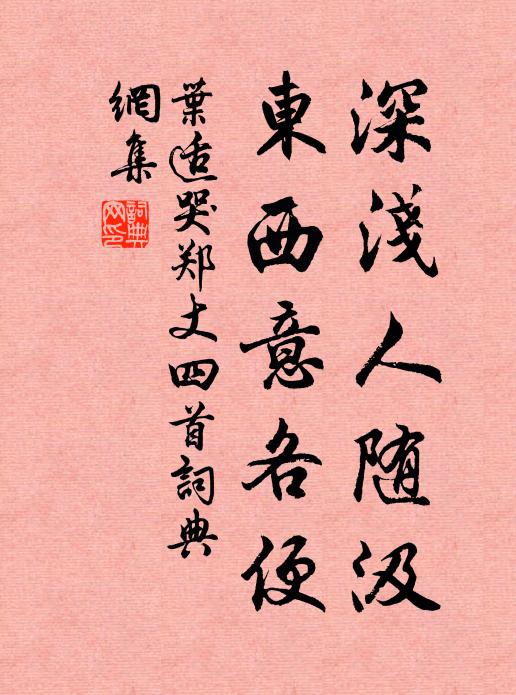 深淺人随汲
東西意各便
葉适哭郑丈四首詞典
網集
詞典網印